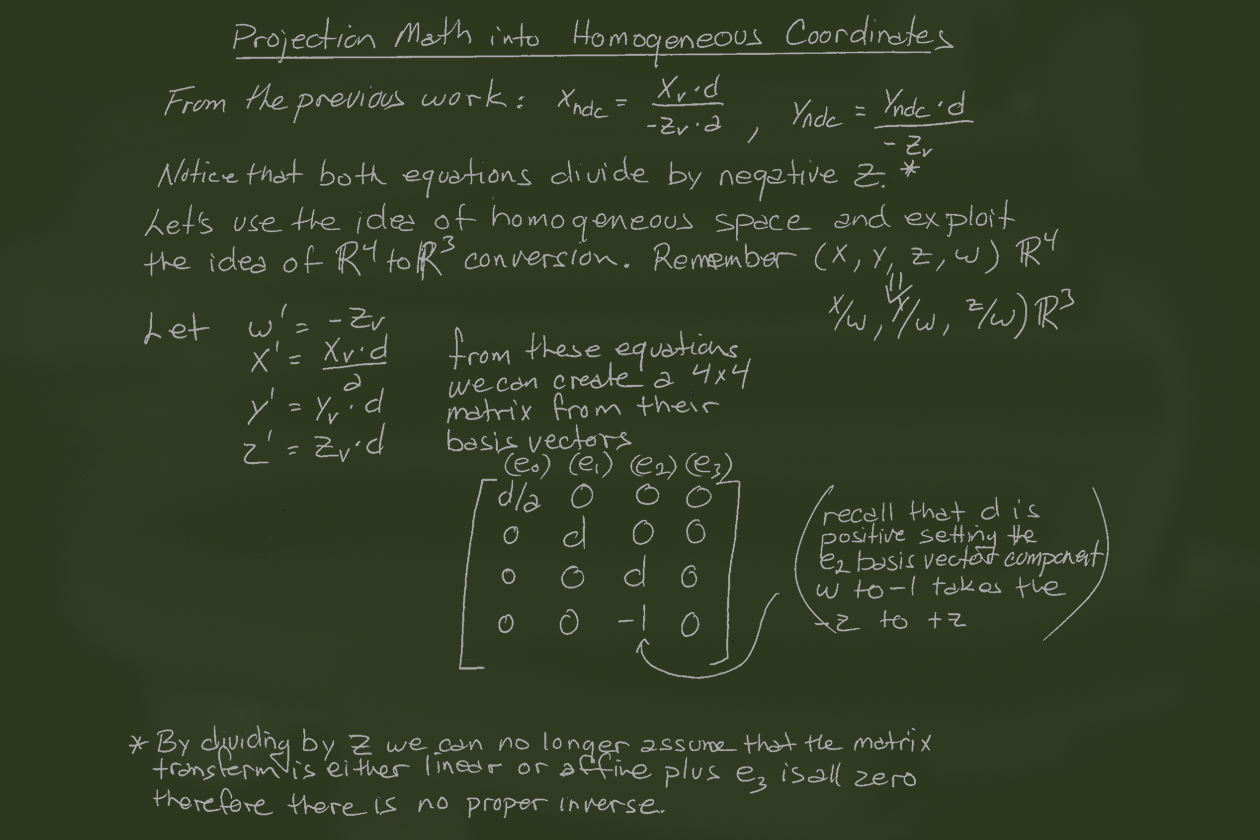 Projection Math into Homogeneous Coordinates
From the previous work: Xndc = Xv·d / -Zv·a , Yndc = Yndc·d / -Zv
Notice that both equations divide by negative Z. *
Let's use the idea of homogeneous space and exploit
the idea of ℝ⁴ to ℝ³ conversion. Remember (X, Y, Z, W) ℝ⁴
X/W, Y/W, Z/W) ℝ³
Let w' = -Zv
X' = Xv·d / a
Y' = Yv·d
Z' = Zv·d
from these equations
we can create a 4x4
matrix from their
basis vectors
(e₀) (e₁) (e₂) (e₃)
d/a 0 0 0
0 d 0 0
0 0 d 0
0 0 -1 0
(recall that d is
positive setting the
e₂ basis vector component
w to -1 takes the
-z to +z)
* By dividing by Z we can no longer assume that the matrix
transform is either linear or affine plus e₃ is all zero
therefore there is no proper inverse.